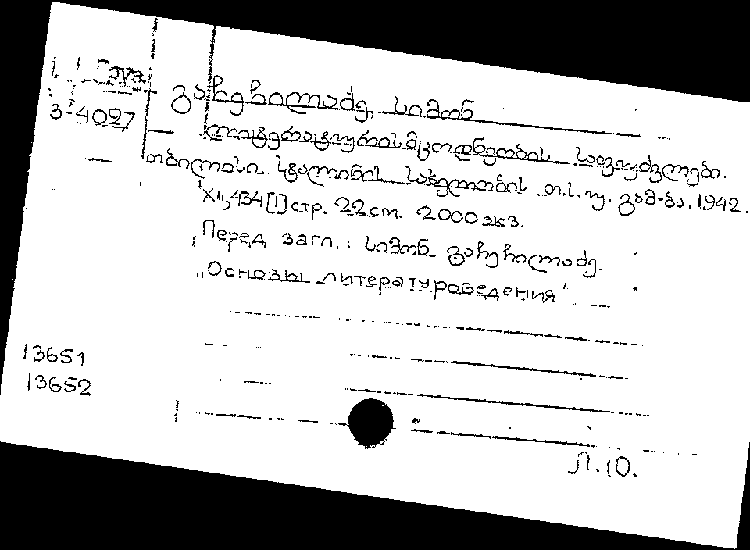 Груз.
3-4027
გაჩეჩილაძე, სიმონ
ლიტერატურისმცოდნეობის საფუძვლები.
თბილისი. სტალინის სახელობის თ.ს.უ. გამ-ბა. 1942.
XII, 434 [1] стр. 22 см. 2000 экз.
Перед загл.: სიმონ გაჩეჩილაძე.
„Основы литературоведения".
13651
13652
Л.Ю.